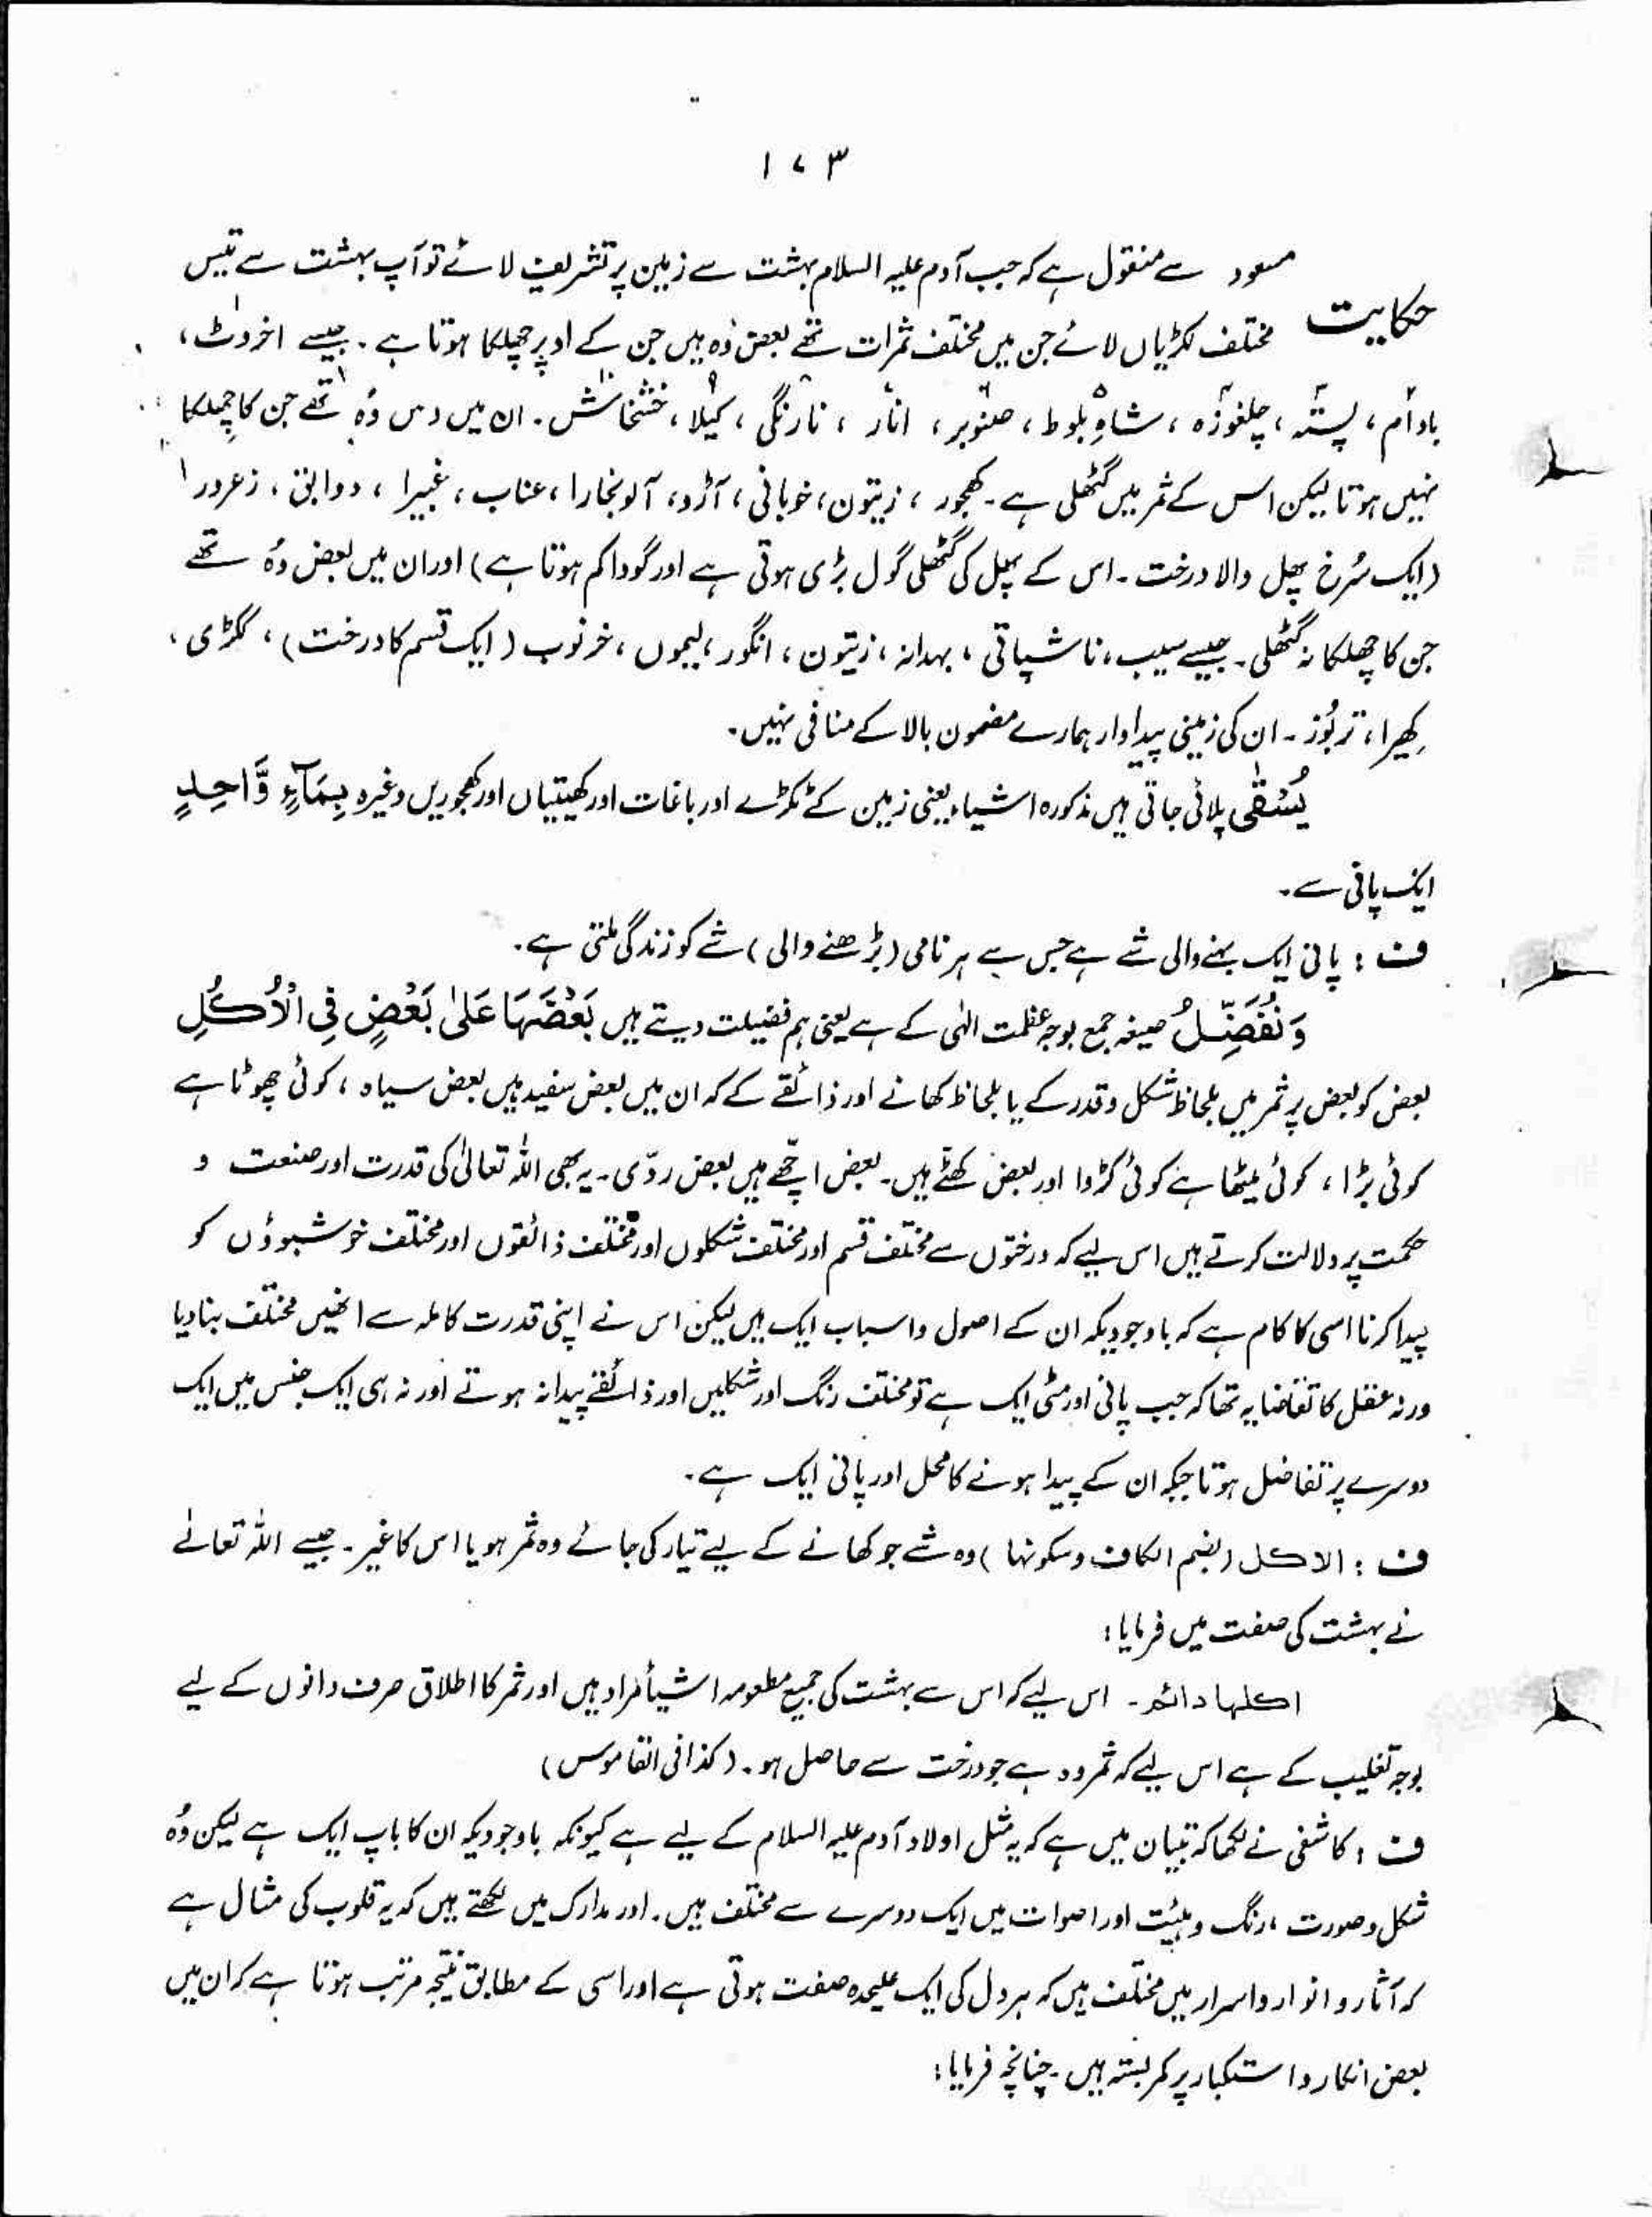 ۱۷۳
حکایت مسعود سے منقول ہے کہ جب آدم علیہ السلام بہشت سے زمین پر تشریف لائے تو آپ بہشت سے تیس
مختلف لکڑیاں لائے جن میں مختلف ثمرات تھے بعض وُہ ہیں جن کے اوپر چھلکا ہوتا ہے ۔ جیسے اخروٹ،
بادام، پستہ، چلغوزہ، شاہ بلوط، صنوبر، انار، نارنگی، کیلا، خشخاش۔ ان میں دس وُہ تھے جن کا چھلکا
نہیں ہوتا لیکن اس کے ثمر میں گٹھلی ہے۔ کھجور، زیتون، خوبانی، آڑو، آلوبخارا، عناب، غبیرا، دوابق، زعرور
(ایک سُرخ پھل والا درخت ۔ اس کے پھل کی گٹھلی گول بڑی ہوتی ہے اور گودا کم ہوتا ہے) اور ان میں بعض وُہ تھے
جن کا چھلکا نہ گٹھلی۔ جیسے سیب، ناشپاتی، بہدانہ، زیتون، انگور، لیموں، خرنوب (ایک قسم کا درخت)، ککڑی،
کھیرا، تربُوز۔ ان کی زمینی پیداوار ہمارے مضمون بالا کے منافی نہیں۔
یُسْقٰی پلائی جاتی ہیں مذکورہ اشیاء یعنی زمین کے ٹکڑے اور باغات اور کھیتیاں اور کھجوریں وغیرہ بِمَآءٍ وَّاحِدٍ
ایک پانی سے۔
ف : پانی ایک بہنے والی شے ہے جس سے ہر نامی (بڑھنے والی) شے کو زندگی ملتی ہے۔
وَ نُفَضِّلُ صیغہ جمع بوجہ عظمت الٰہی کے ہے یعنی ہم فضیلت دیتے ہیں بَعْضَهَا عَلٰی بَعْضٍ فِی الْاُکُلِ
بعض کو بعض پر ثمر میں بلحاظ شکل و قدر کے یا بلحاظ کھانے اور ذائقے کے کہ ان میں بعض سفید ہیں بعض سیاہ، کوئی چھوٹا ہے
کوئی بڑا، کوئی میٹھا ہے کوئی کڑوا اور بعض کھٹے ہیں۔ بعض اچھے ہیں بعض ردّی۔ یہ بھی اللہ تعالیٰ کی قدرت اور صنعت و
حکمت پر دلالت کرتے ہیں اس لیے کہ درختوں سے مختلف قسم اور مختلف شکلوں اور مختلف ذائقوں اور مختلف خوشبوؤں کو
پیدا کرنا اسی کا کام ہے کہ باوجودیکہ ان کے اصول و اسباب ایک ہیں لیکن اس نے اپنی قدرت کاملہ سے انھیں مختلف بنا دیا
ورنہ عقل کا تقاضا یہ تھا کہ جب پانی اور مٹی ایک ہے تو مختلف رنگ اور شکلیں اور ذائقے پیدا نہ ہوتے اور نہ ہی ایک جنس میں ایک
دوسرے پر تفاضل ہوتا جبکہ ان کے پیدا ہونے کا محل اور پانی ایک ہے۔
ف : الاکل (بضم الکاف و سکونہا) وہ شے جو کھانے کے لیے تیار کی جائے وہ ثمر ہو یا اس کا غیر۔ جیسے اللہ تعالےٰ
نے بہشت کی صفت میں فرمایا :
اکلہا دائم ۔ اس لیے کہ اس سے بہشت کی جمیع مطعومہ اشیأ مراد ہیں اور ثمر کا اطلاق صرف دانوں کے لیے
بوجہ تغلیب کے ہے اس لیے کہ ثمر وہ ہے جو درخت سے حاصل ہو۔ (کذا فی القاموس)
ف : کاشفی نے لکھا کہ تبیان میں ہے کہ یہ مثل اولاد آدم علیہ السلام کے لیے ہے کیونکہ باوجودیکہ ان کا باپ ایک ہے لیکن وُہ
شکل و صورت، رنگ و ہیئت اور اصوات میں ایک دوسرے سے مختلف ہیں۔ اور مدارک میں لکھتے ہیں کہ یہ قلوب کی مثال ہے
کہ آثار و انوار و اسرار میں مختلف ہیں کہ ہر دل کی ایک علیحدہ صفت ہوتی ہے اور اسی کے مطابق نتیجہ مرتب ہوتا ہے کہ ان میں
بعض انکار و استکبار پر کمربستہ ہیں۔ چنانچہ فرمایا :